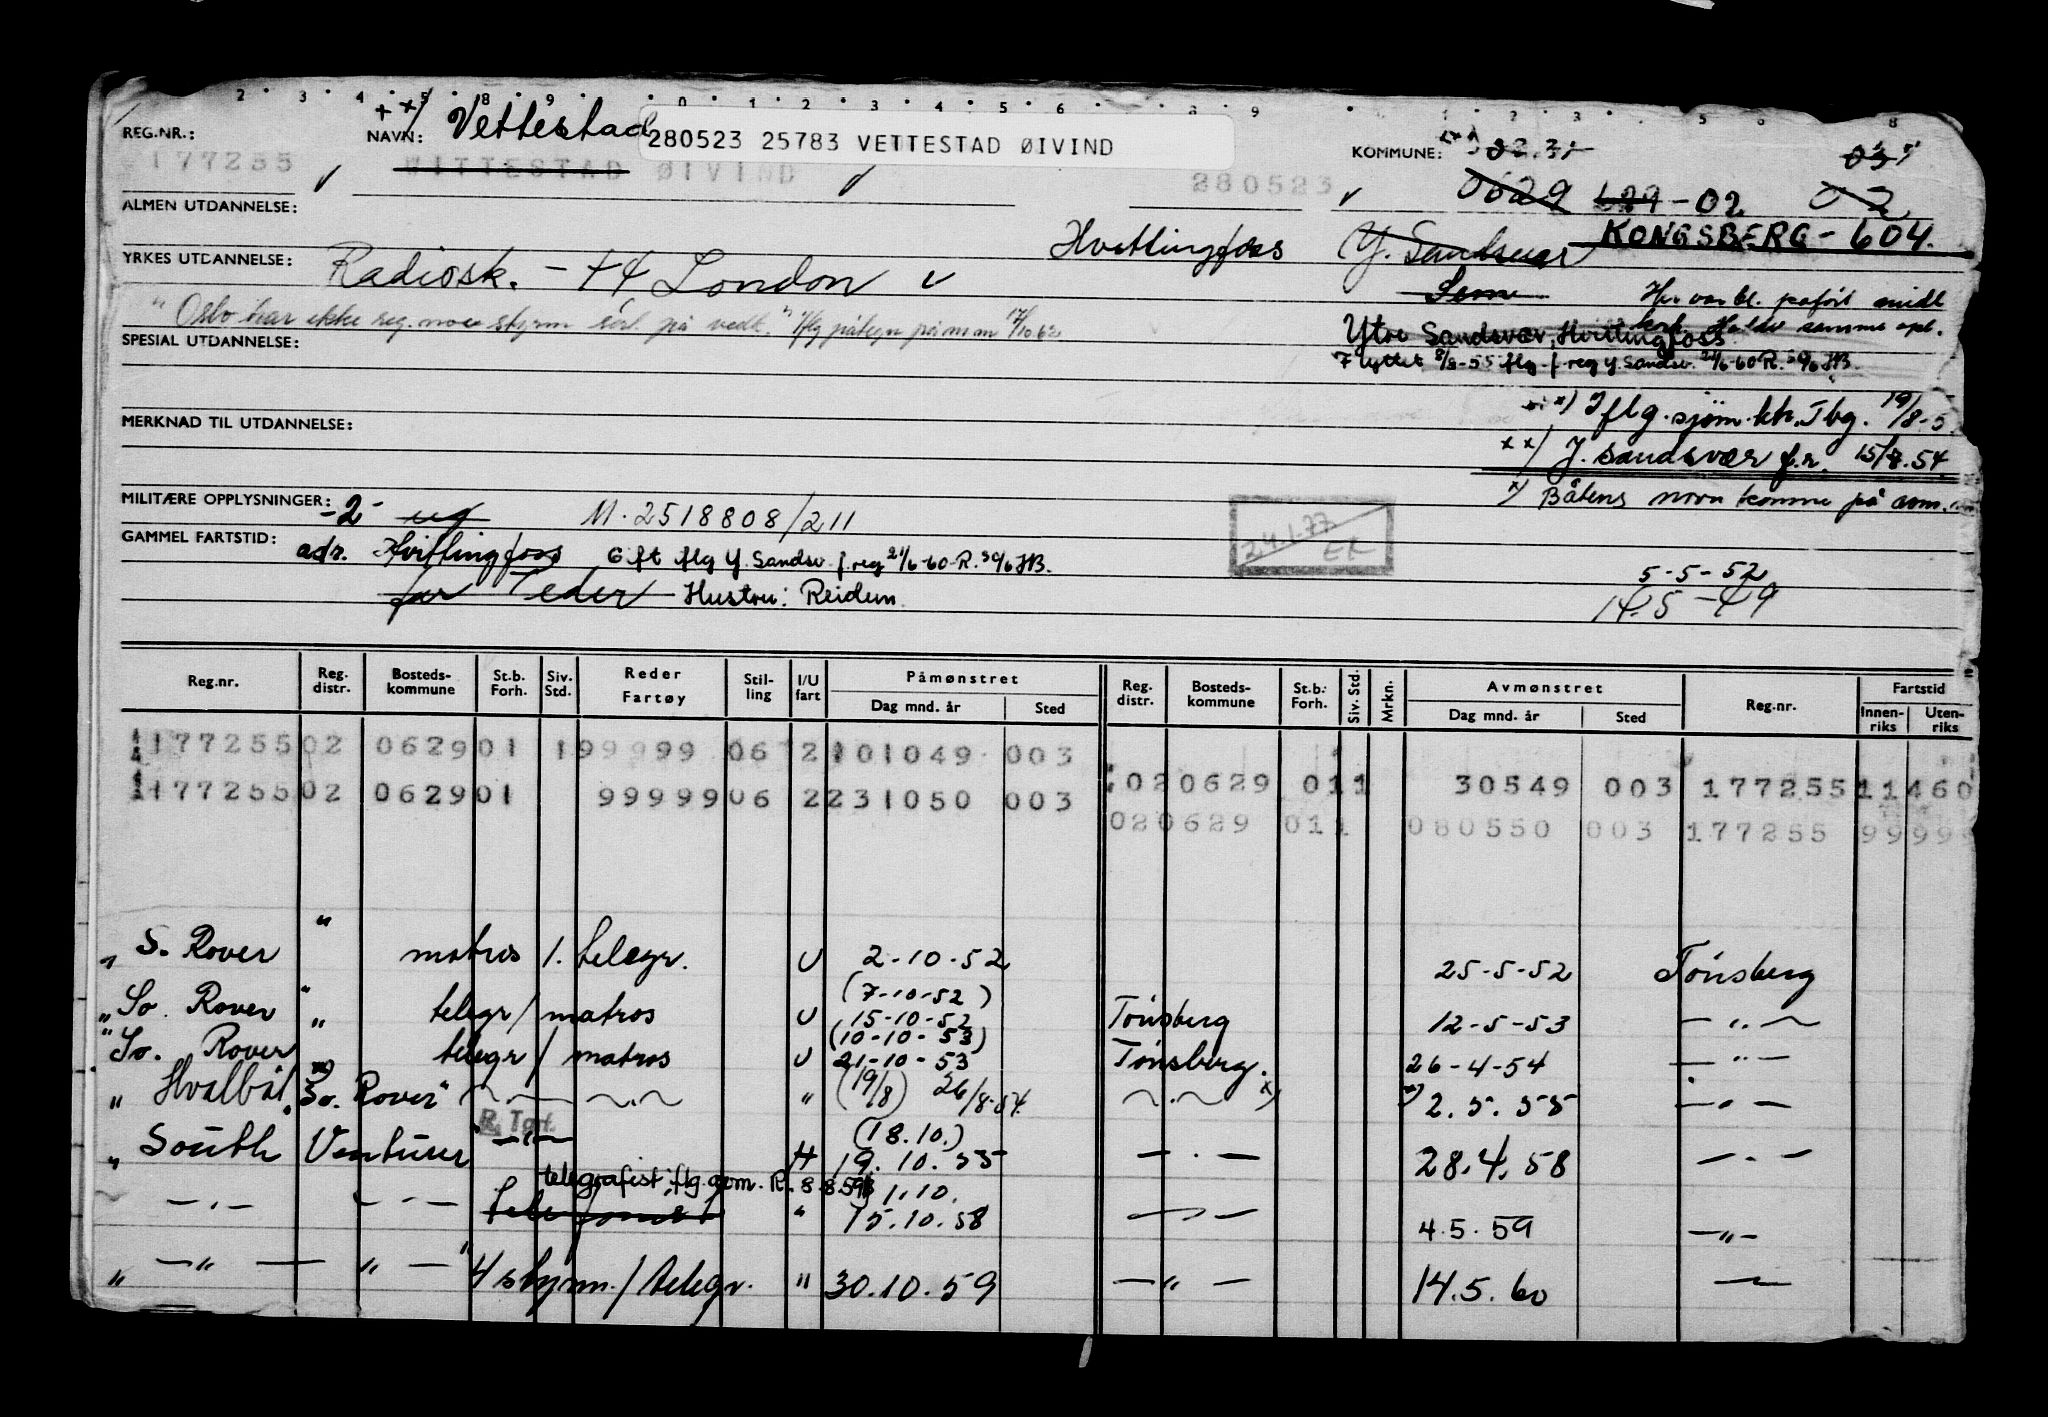 REG.NR.: 177255
NAVN: Vettestad
280523 25783 VETTESTAD ØIVIND
WITTESTAD ØIVIND
280523
KOMMUNE: 0231 03
0629 629-02 02
KONGSBERG - 604.
ALMEN UTDANNELSE:
Hvittingfoss Y. Sandsvær
YRKES UTDANNELSE: Radiosk. - 44 London
Sem
"Oslo har ikke reg. noe styrm sert. på vedk." Iflg påtegn på m m 17/10.62
Ytre Sandsvær, Hvittingfoss
Flyttet 8/8-55 iflg f reg Y. Sandsv. 21/6-60 R. 30/6 HB.
SPESIAL UTDANNELSE:
Iflg. sjøm. ktr. Tbg. 19/8-5
MERKNAD TIL UTDANNELSE:
xx) Y. Sandsvær f.r. 15/7.54
x) Båtens navn komme på avm.
MILITÆRE OPPLYSNINGER: -2- ug M. 2518808/211
24.1.77
GAMMEL FARTSTID:
adr. Hvittingfoss Gift iflg Y. Sandsv f. reg 21/6-60-R. 30/6 HB.
far Peder Hustru: Reidun
5-5-52
14.5-49
Reg.nr. Reg. distr. Bosteds-kommune St.b. Forh. Siv. Std. Reder Fartøy Stil-ling I/U fart Påmønstret Dag mnd. år Sted Reg. distr. Bosteds-kommune St.b. Forh. Siv. Std. Mrkn. Avmønstret Dag mnd. år Sted Reg.nr. Fartstid Innen-riks Uten-riks
177255 02 0629 01 1 99999 06 2 101049 003
020629 011 30549 003 177255 11460
177255 02 0629 01 99999 06 2 231050 003
020629 011 080550 003 177255 9999
" S. Rover " matros / 1. telegr. U 2-10-52 25-5-52 Tönsberg
(7-10-52)
" So. Rover " telegr / matros U 15-10-52 Tönsberg 12-5-53 — " —
(10-10-53)
" So. Rover telegr / matros U 21-10-53 Tönsberg. 26-4-54 — " —
" Hvalbåt "So. Rover" — " — " (19/8) 26/8-54 — " — x) 2.5.55 — " —
R. Tort.
(18.10.)
" South Venturer — " — 19.10.55 — " — 28.4.58 — " —
telegrafist iflg. gem. R. 8.8.59 1.10.
— " — — " — telefonist " 15.10.58 — " — 4.5.59 — " —
" — " — " — 4 styrm. / telegr. " 30.10.59 — " — 14.5.60 — " —